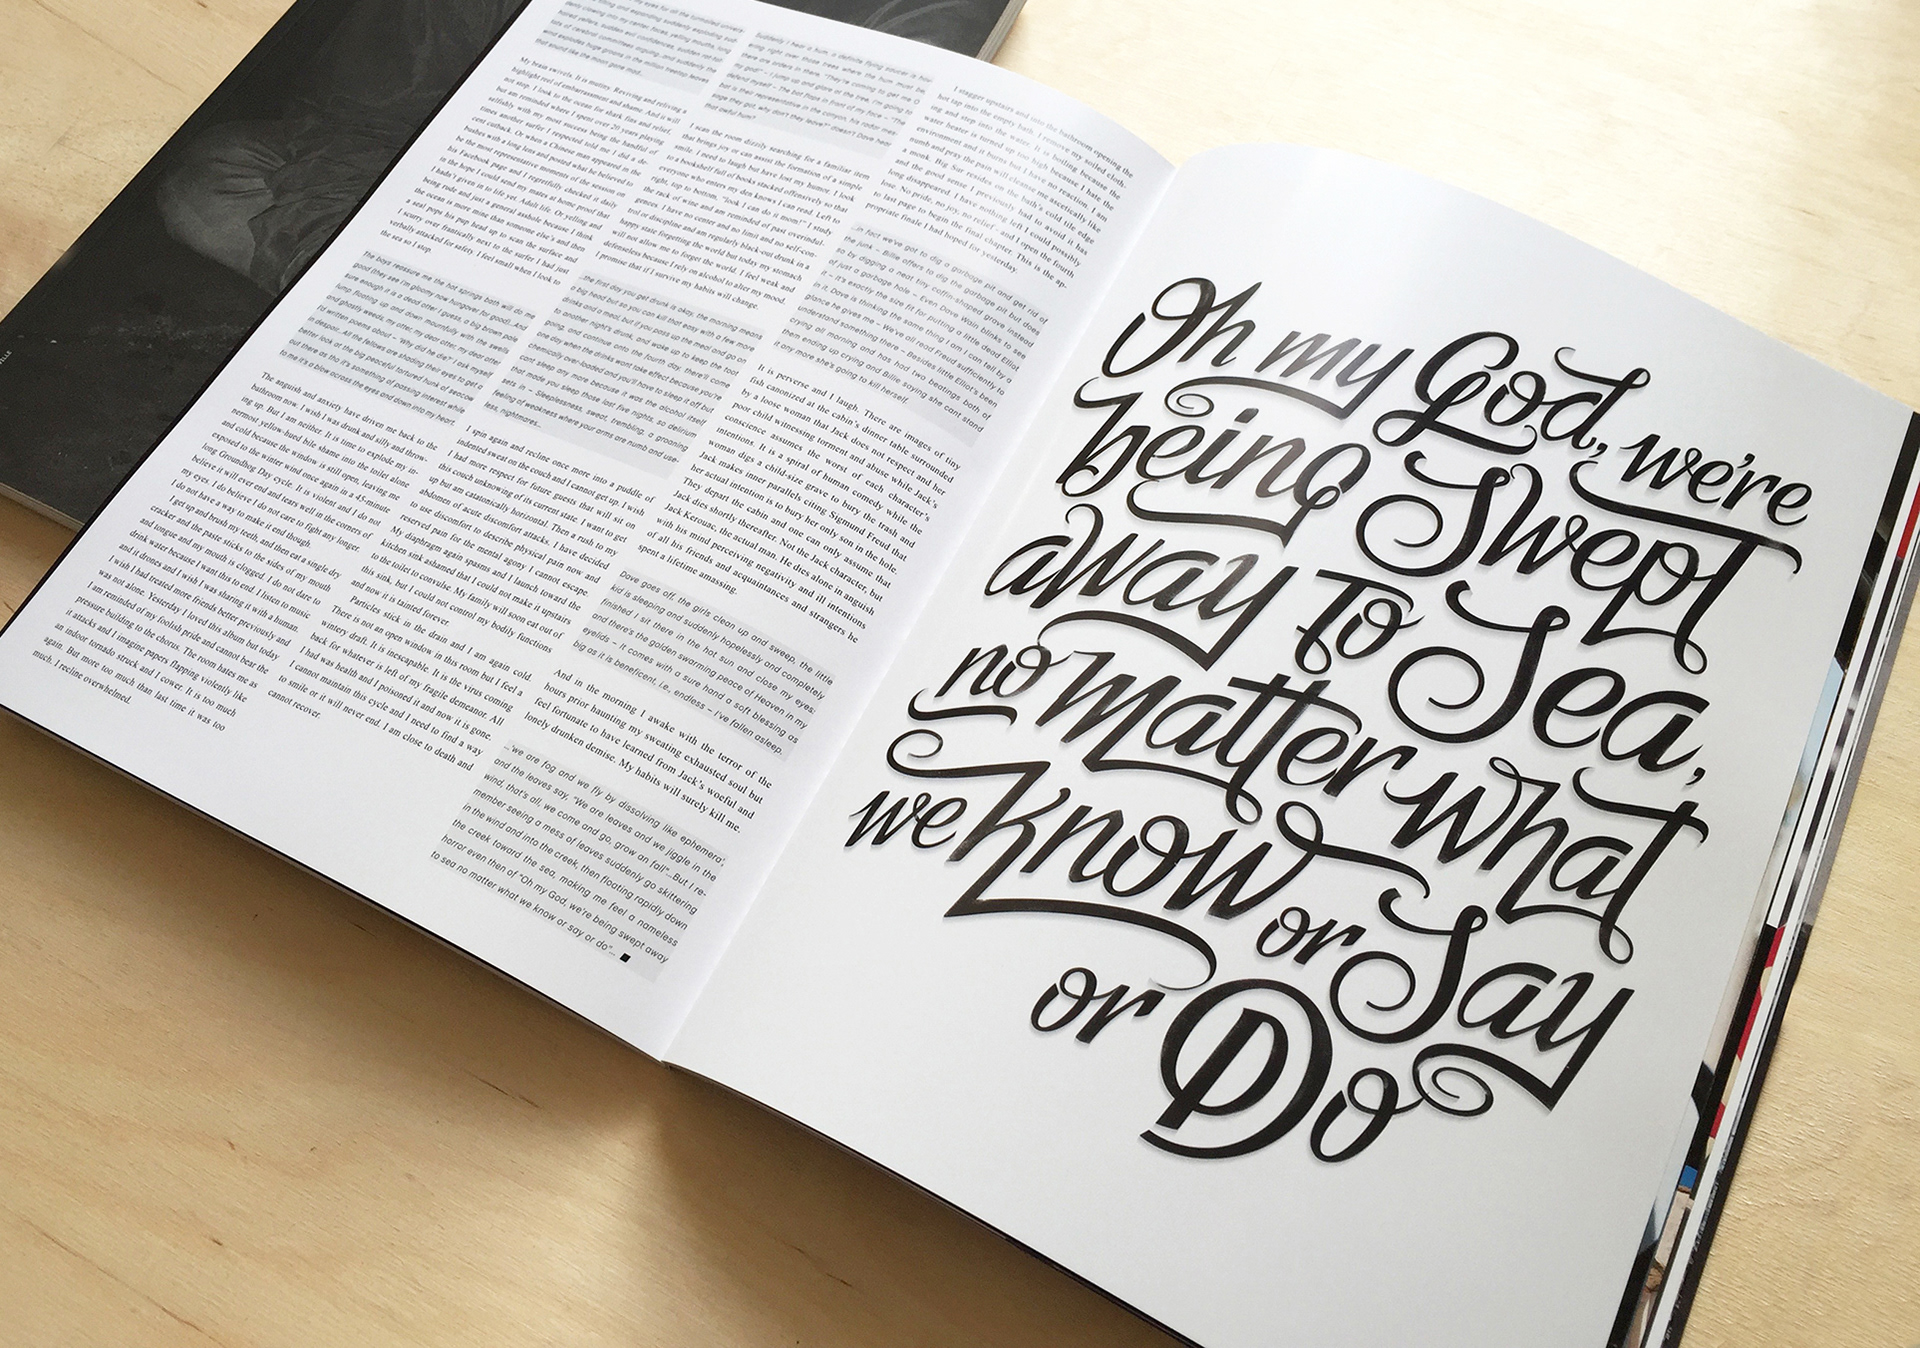 my eyes for all the turmoiled univers
tilting and expanding suddenly exploding sud-
denly clawing into my center, faces, yelling mouths, long
haired yellers, sudden evil confidences, sudden rat-tat-
tats of cerebral committees arguing...and suddenly the
wind explodes huge groans in the million treetop leaves
that sound like the moon gone mad...
My brain swivels. It is mutiny. Reviving and reliving a
highlight reel of embarrassment and shame. And it will
not stop. I look to the ocean for shark fins and relief,
but am reminded where I spent over 20 years playing
selfishly with my most success being the handful of
times another surfer I respected told me I did a de-
cent cutback. Or when a Chinese man appeared in the
bushes with a long lens and posted what he believed to
be the most representative moments of the season on
his Facebook page and I regretfully checked it daily
in the hope I could send my mates at home proof that
I hadn't given in to life yet. Adult life. Or yelling and
being rude and just a general asshole because I think
the ocean is more mine than someone else's and then
a seal pops his pup head up to scan the surface and
I scurry over frantically next to the surfer I had just
verbally attacked for safety. I feel small when I look to
the sea so I stop.
The boys reassure me the hot springs bath will do me
good (they see I'm gloomy now hungover for good). And
sure enough it is a dead otter I guess, a big brown pale
lump floating up and down mournfully with the swells
and ghostly weeds, my otter, my dear otter, my dear otter
I'd written poems about – "Why did he die?" I ask myself
in despair...All the fellows are shading their eyes to get a
better look at the big peaceful tortured hunk of seacow
out there as tho it's something of passing interest while
to me it's a blow across the eyes and down into my heart.
The anguish and anxiety have driven me back to the
bathroom now. I wish I was drunk and silly and throw-
ing up. But I am neither. It is time to explode my in-
nermost yellow-hued bile shame into the toilet alone
and cold because the window is still open, leaving me
exposed to the winter wind once again in a 45-minute
long Groundhog Day cycle. It is violent and I do not
believe it will ever end and tears well in the corners of
my eyes. I do believe I do not care to fight any longer.
I do not have a way to make it end though.
I get up and brush my teeth, and then eat a single dry
cracker and the paste sticks to the sides of my mouth
and tongue and my mouth is clogged. I do not dare to
drink water because I want this to end. I listen to music
and it drones and I wish I was sharing it with a human.
I wish I had treated more friends better previously and
was not alone. Yesterday I loved this album but today
I am reminded of my foolish pride and cannot bear the
pressure building to the chorus. The room hates me as
it attacks and I imagine papers flapping violently like
an indoor tornado struck and I cower. It is too much
again. But more too much than last time it was too
much. I recline overwhelmed.
Suddenly I hear a hum, a definite flying saucer is hov-
ering right over those trees where the hum must be
there are orders in there. "They're coming to get me O
my god!" – I jump up and glare at the tree, I'm going to
defend myself – The bat flaps in front of my face – "The
bat is their representative in the canyon, his radar mes-
sage they got, why don't they leave?" doesn't Dave hear
that awful hum?
I scan the room dizzily searching for a familiar item
that brings joy or can assist the formation of a simple
smile. I need to laugh but have lost my humor. I look
to a bookshelf full of books stacked offensively so that
everyone who enters my den knows I can read. Left to
right, top to bottom, "look I can do it mom!" I study
the rack of wine and am reminded of past overindul-
gences. I have no center and no limit and no self-con-
trol or discipline and am regularly black-out drunk in a
happy state forgetting the world but today my stomach
will not allow me to forget the world. I feel weak and
defenseless because I rely on alcohol to alter my mood.
I promise that if I survive my habits will change.
...the first day you get drunk is okay, the morning means
a big head but so you can kill that easy with a few more
drinks and a meal, but if you pass up the meal and go on
to another night's drunk, and wake up to keep the toot
going, and continue onto the fourth day, there'll come
one day when the drinks wont take effect because you're
chemically over-loaded and you'll have to sleep it off but
cant sleep any more because it was the alcohol itself
that made you sleep those last five nights, so delirium
sets in. – Sleeplessness, sweat, trembling, a groaning
feeling of weakness where your arms are numb and use-
less, nightmares...
I spin again and recline once more into a puddle of
indented sweat on the couch and I cannot get up. I wish
I had more respect for future guests that will sit on
this couch unknowing of its current state. I want to get
up but am catatonically horizontal. Then a rush to my
abdomen of acute discomfort attacks. I have decided
to use discomfort to describe physical pain now and
reserved pain for the mental agony I cannot escape
My diaphragm again spasms and I launch toward the
kitchen sink ashamed that I could not make it upstairs
to the toilet to convulse. My family will soon eat out of
this sink, but I could not control my bodily functions
and now it is tainted forever.
Particles stick in the drain and I am again cold.
There is not an open window in this room but I feel a
wintery draft. It is inescapable. It is the virus coming
back for whatever is left of my fragile demeanor. All
I had was health and I poisoned it and now it is gone.
I cannot maintain this cycle and I need to find a way
to smile or it will never end. I am close to death and
cannot recover.
I stagger upstairs and into the bathroom opening the
hot tap into the empty bath. I remove my soiled cloth-
ing and step into the water. It is boiling because the
water heater is turned up too high because I hate the
environment and it burns but I have no reaction. I am
numb and pray the pain will cleanse me ascetically like
a monk. Big Sur resides on the bath's cold tile edge
and the good sense I previously had to avoid it has
long disappeared. I have nothing left I could possibly
lose. No pride, no joy, no relief - and I open the fourth
to last page to begin the final chapter. This is the ap-
propriate finale I had hoped for yesterday.
...in fact we've got to dig a garbage pit and get rid of
the junk – Billie offers to dig the garbage pit but does
so by digging a neat tiny coffin-shaped grave instead
of just a garbage hole – Even Dave Wain blinks to see
it – It's exactly the size fit for putting a little dead Elliot
in it, Dave is thinking the same thing I am I can tell by a
glance he gives me – We've all read Freud sufficiently to
understand something there – Besides little Elliot's been
crying all morning and has had two beatings both of
them ending up crying and Billie saying she cant stand
it any more she's going to kill herself.
It is perverse and I laugh. There are images of tiny
fish canonized at the cabin's dinner table surrounded
by a loose woman that Jack does not respect and her
poor child witnessing torment and abuse while Jack's
conscience assumes the worst of each character's
intentions. It is a spiral of human comedy while the
woman digs a child-size grave to bury the trash and
Jack makes inner parallels citing Sigmund Freud that
her actual intention is to bury her only son in the hole.
They depart the cabin and one can only assume that
Jack dies shortly thereafter. Not the Jack character, but
Jack Kerouac, the actual man. He dies alone in anguish
with his mind perceiving negativity and ill intentions
of all his friends and acquaintances and strangers he
spent a lifetime amassing.
Dave goes off, the girls clean up and sweep, the little
kid is sleeping and suddenly hopelessly and completely
finished I sit there in the hot sun and close my eyes:
and there's the golden swarming peace of Heaven in my
eyelids – It comes with a sure hand a soft blessing as
big as it is beneficent, i.e., endless – I've fallen asleep.
And in the morning I awake with the terror of the
hours prior haunting my sweating exhausted soul but
feel fortunate to have learned from Jack's woeful and
lonely drunken demise. My habits will surely kill me.
...'we are fog and we fly by dissolving like ephemera',
and the leaves say, "We are leaves and we jiggle in the
wind, that's all, we come and go, grow an fall"...But I re-
member seeing a mess of leaves suddenly go skittering
in the wind and into the creek, then floating rapidly down
the creek toward the sea, making me feel a nameless
horror even then of "Oh my God, we're being swept away
to sea no matter what we know or say or do"...
Oh my God, we're
being Swept
away To Sea,
no matter what
we know or Say
or Do